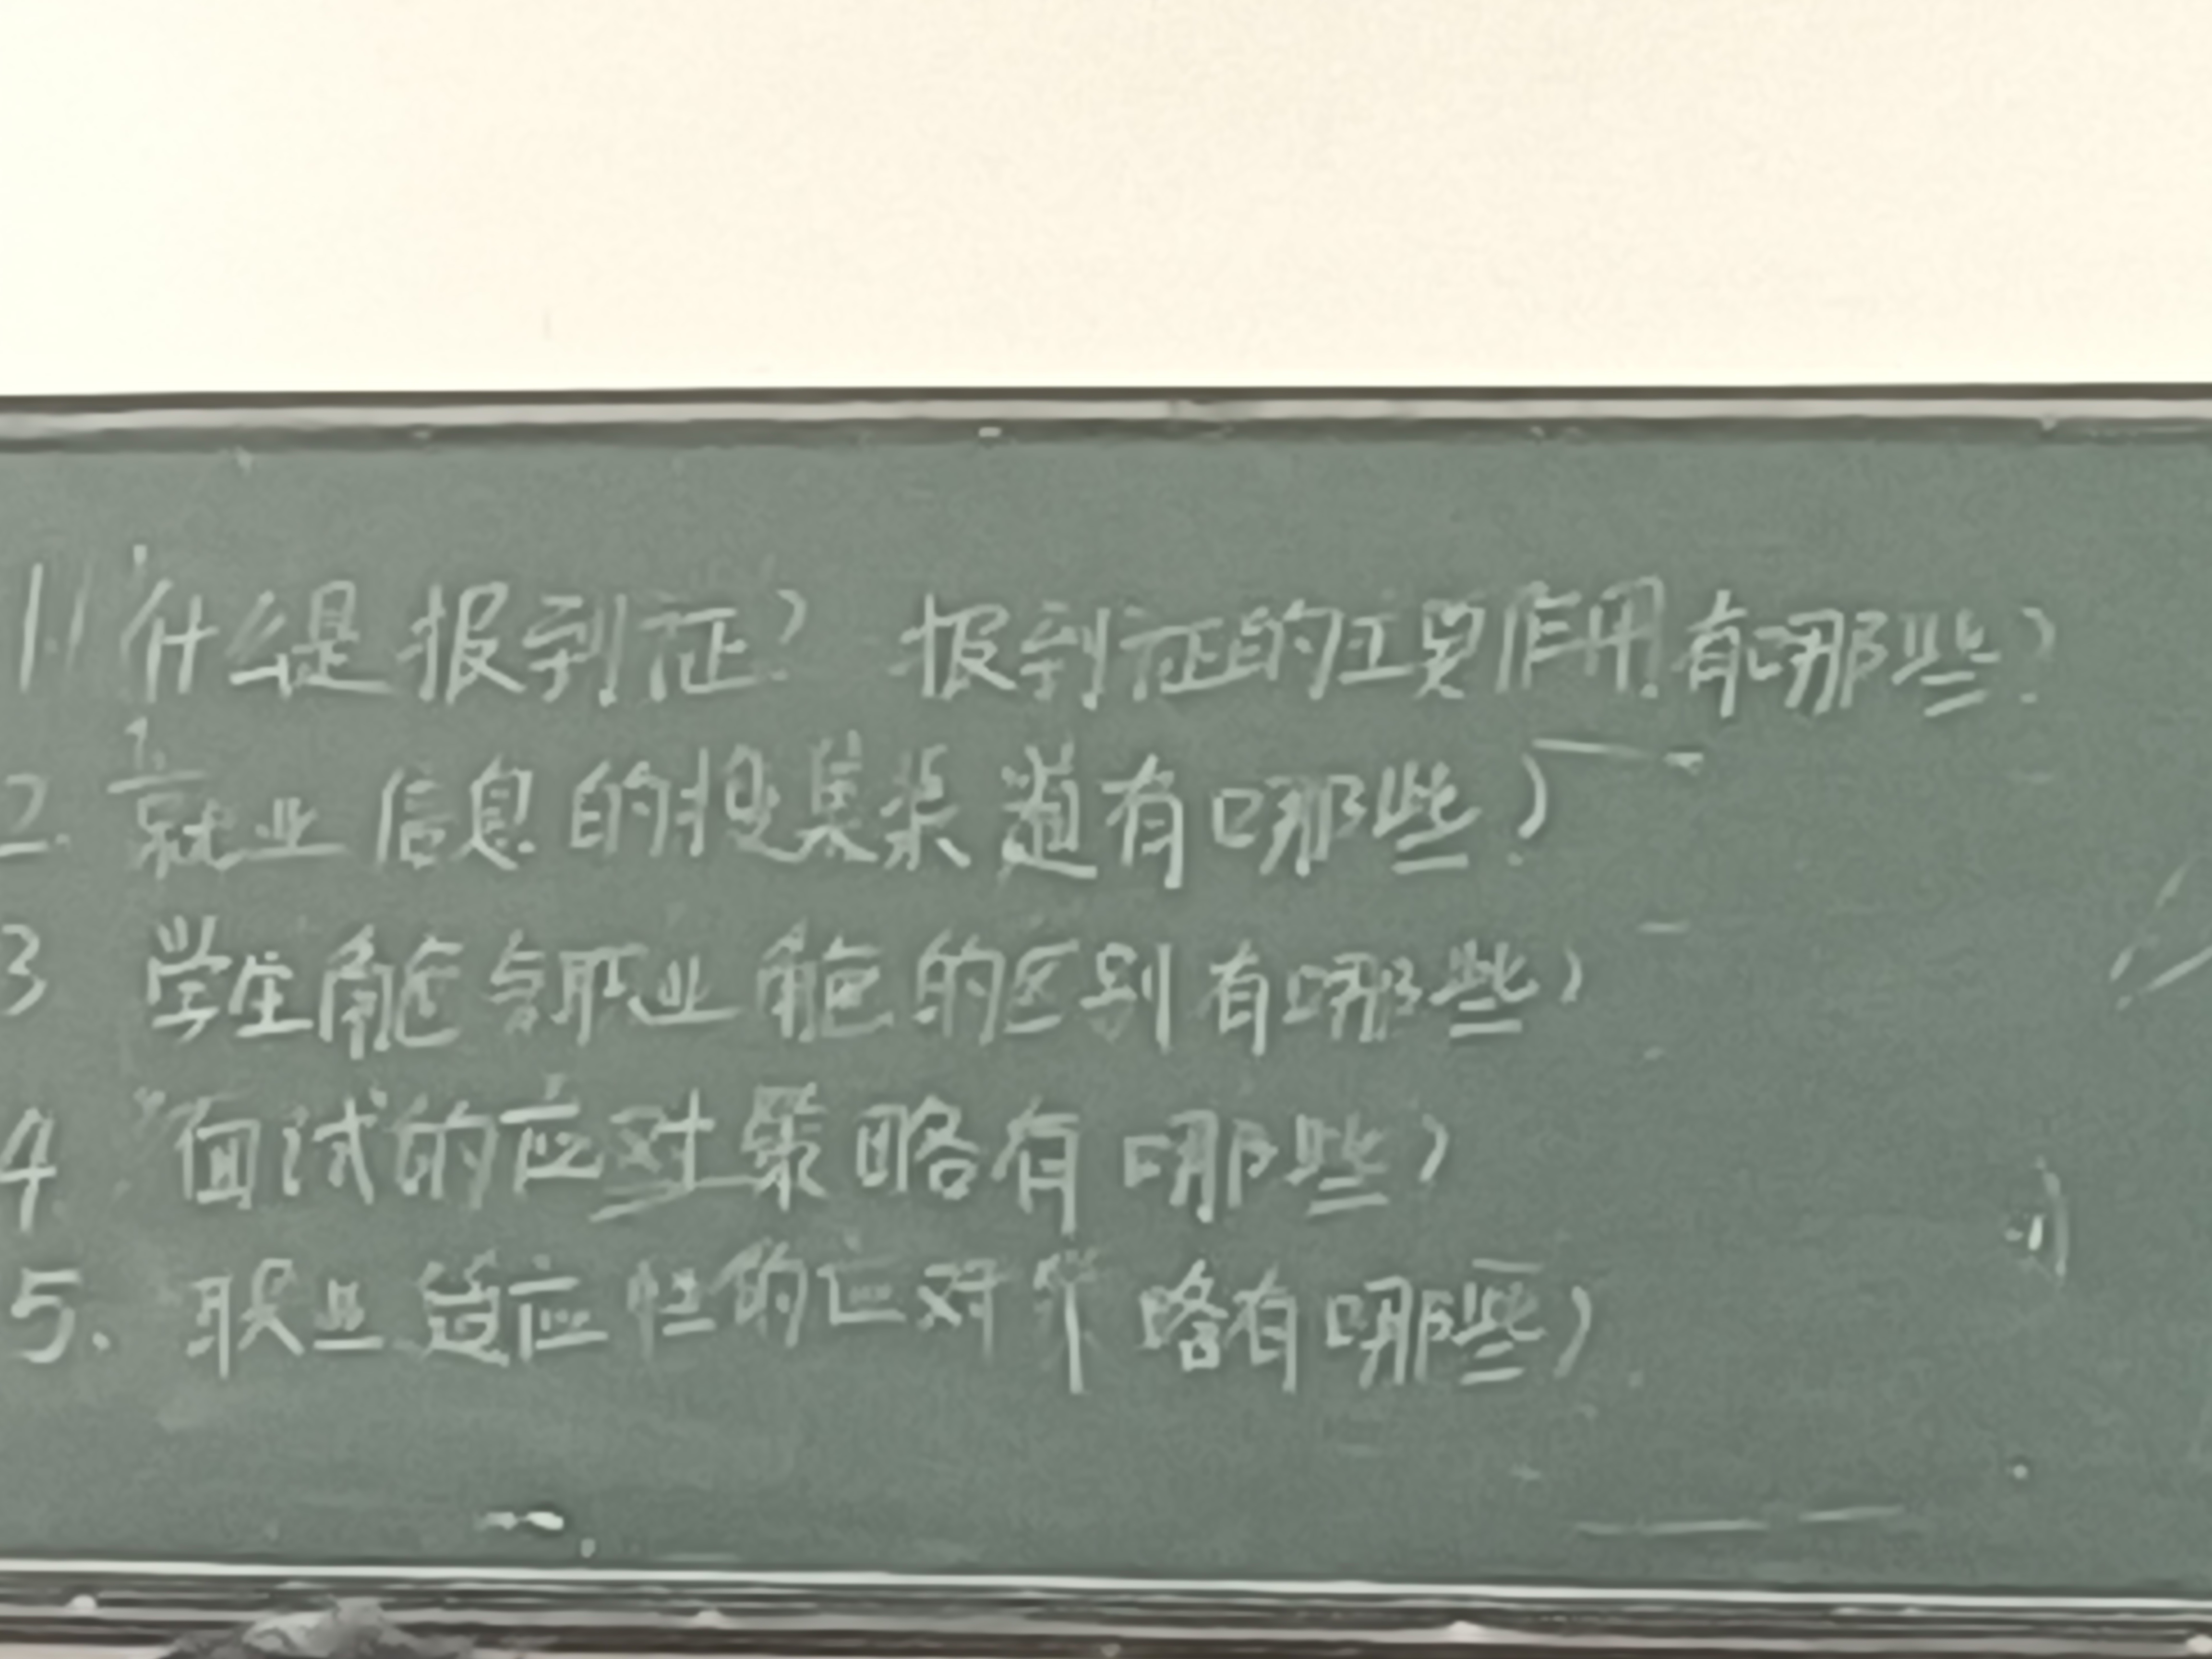 1. 什么是报到证? 报到证的主要作用有哪些?
2. 就业信息的搜集渠道有哪些?
3 学生角色与职业角色的区别有哪些?
4 面试的应对策略有哪些?
5. 职业适应性的应对策略有哪些?